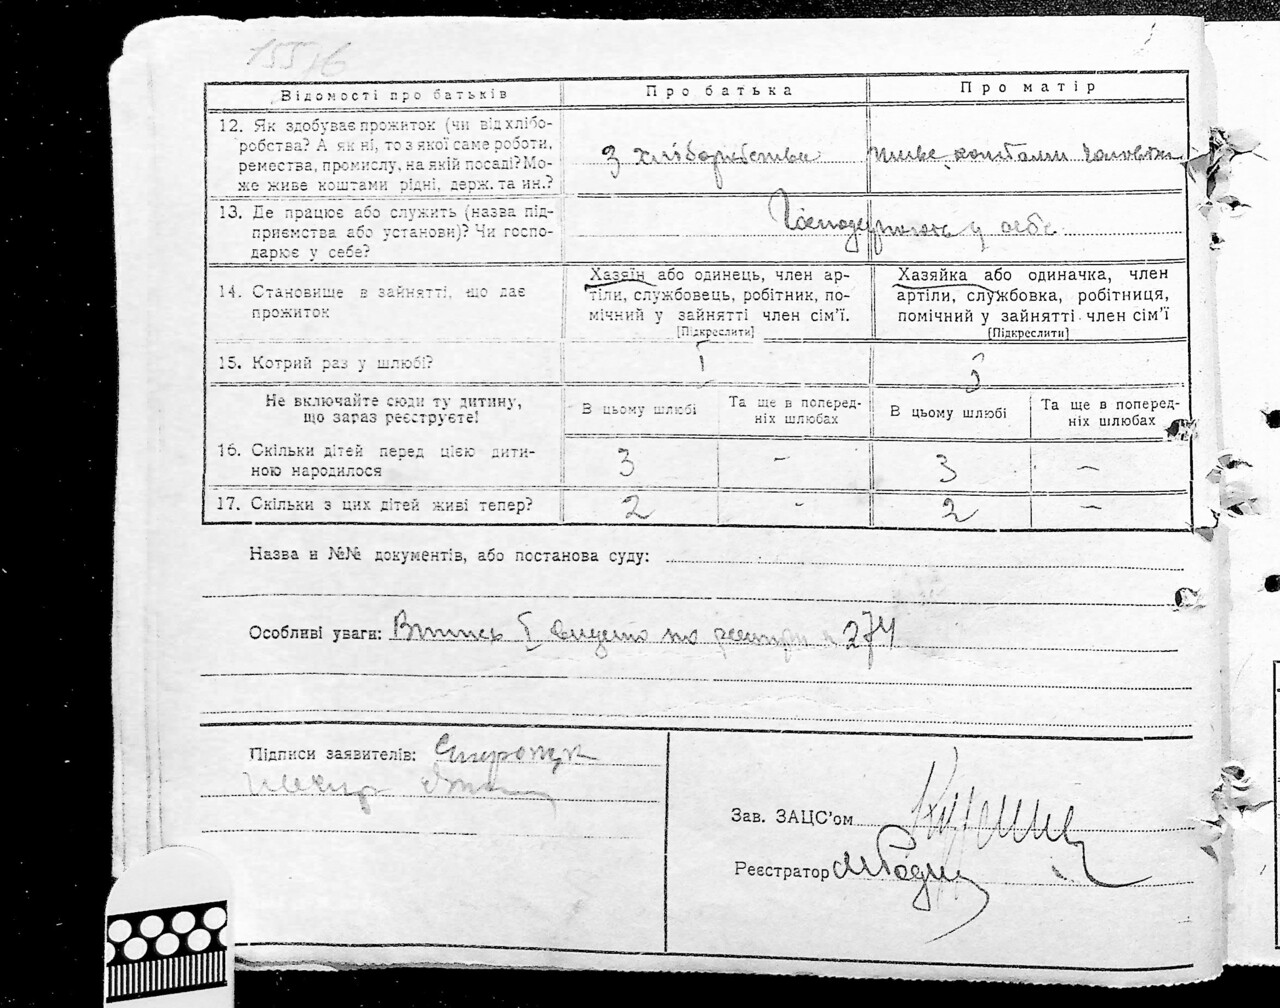 Відомості про батьків
Про батька
Про матір
12. Як здобуває прожиток (чи від хлібо-
робства? А як ні, то з якої саме роботи,
ремества, промислу, на якій посаді? Мо-
же живе коштами рідні, держ. та ин.?
З хліборобства
живе коштами чоловіка
13. Де працює або служить (назва під-
приємства або установи)? Чи госпо-
дарює у себе?
у себе
14. Становище в зайнятті, що дає
прожиток
Хазяїн або одинець, член ар-
тіли, службовець, робітник, по-
мічний у зайнятті член сім'ї.
[Підкреслити]
Хазяйка або одиначка, член
артіли, службовка, робітниця,
помічний у зайнятті член сім'ї
[Підкреслити]
15. Котрий раз у шлюбі?
I
Не включайте сюди ту дитину,
що зараз реєструєте!
В цьому шлюбі
Та ще в поперед-
ніх шлюбах
В цьому шлюбі
Та ще в поперед-
ніх шлюбах
16. Скільки дітей перед цією дити-
ною народилося
3 - 3 -
17. Скільки з цих дітей живі тепер?
2 - 2 -
Назва и №№ документів, або постанова суду:
Особливі уваги: Витпись I видано по реєстру 274
Підписи заявителів:
Зав. ЗАЦС'ом
Реєстратор